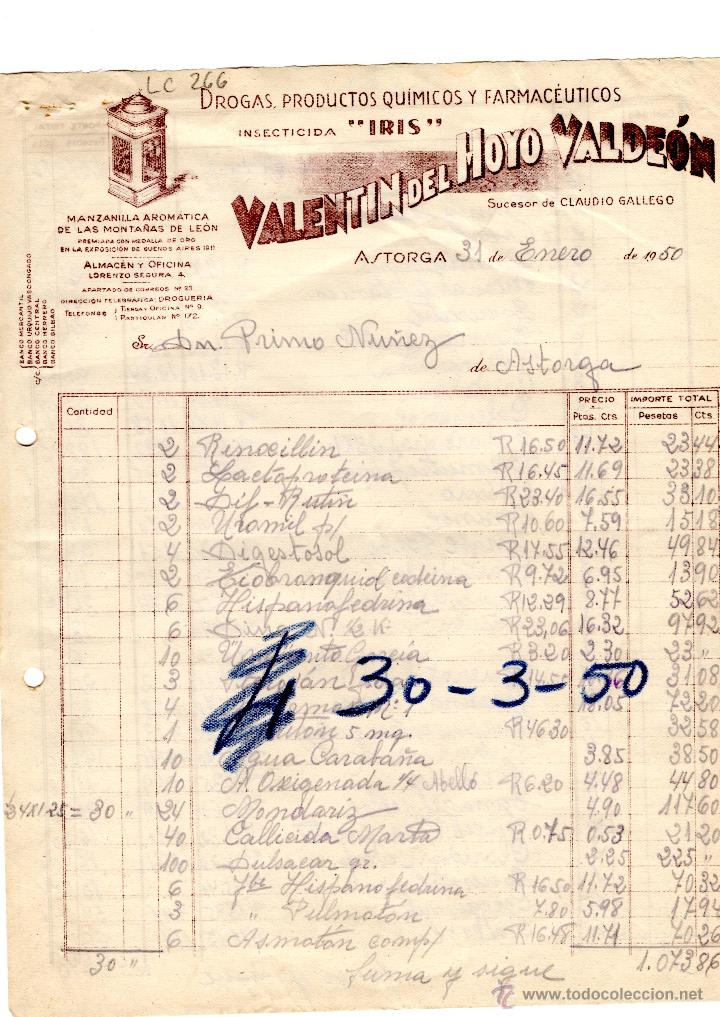 LC 266
DROGAS, PRODUCTOS QUÍMICOS Y FARMACÉUTICOS
INSECTICIDA "IRIS"
VALENTIN DEL HOYO VALDEÓN
Sucesor de CLAUDIO GALLEGO
MANZANILLA AROMÁTICA
DE LAS MONTAÑAS DE LEÓN
PREMIADA CON MEDALLA DE ORO
EN LA EXPOSICIÓN DE BUENOS AIRES 1911
ALMACÉN Y OFICINA
LORENZO SEGURA, 4
APARTADO DE CORREOS Nº 23
DIRECCIÓN TELEGRÁFICA: DROGUERIA
TELÉFONOS TIENDA Y OFICINA Nº 9.
PARTICULAR Nº 172.
C/C. BANCO MERCANTIL
BANCO URQUIJO VASCONGADO
BANCO CENTRAL
BANCO HERRERO
BANCO BILBAO
ASTORGA 31 de Enero de 1950
Sr. Dn. Primo Nuñez
de Astorga
Cantidad PRECIO IMPORTE TOTAL
Ptas. Cts Pesetas Cts
2 Rinoxillin R 16.50 11.72 23 44
2 Lactoproteina R 16.45 11.69 23 38
2 Dif-Rutin R 23.40 16.55 33 10
2 Uromil p/ R 10.60 7.59 15 18
4 Digestosol R 17.55 12.46 49 84
2 Tiobronquid codeina R 9.72 6.95 13 90
6 Hispanofedrina R 12.29 8.77 52 62
6 R 23,06 16.32 97 92
10 R 3.20 2.30 23 "
3 31 08
4 18.05 72 20
1 5 mg. R 46 30 32 58
10 Agua Carabaña 3.85 38 50
10 A. Oxigenada 1/4 Abelló R 6.20 4.48 44 80
24x1.25 = 30 " 24 Mondariz 4.90 117 60
40 Callicida Marta R 0.75 0.53 21 20
100 Dulsacar gr. 2.25 225 "
6 Hispanofedrina R 16.50 11.72 70 32
3 " Pulmotón 7.80 5.98 17 94
6 Asmotón comp/ R 16.48 11.71 70 26
30 " Suma y sigue 1.073 86
30-3-50
www.todocoleccion.net